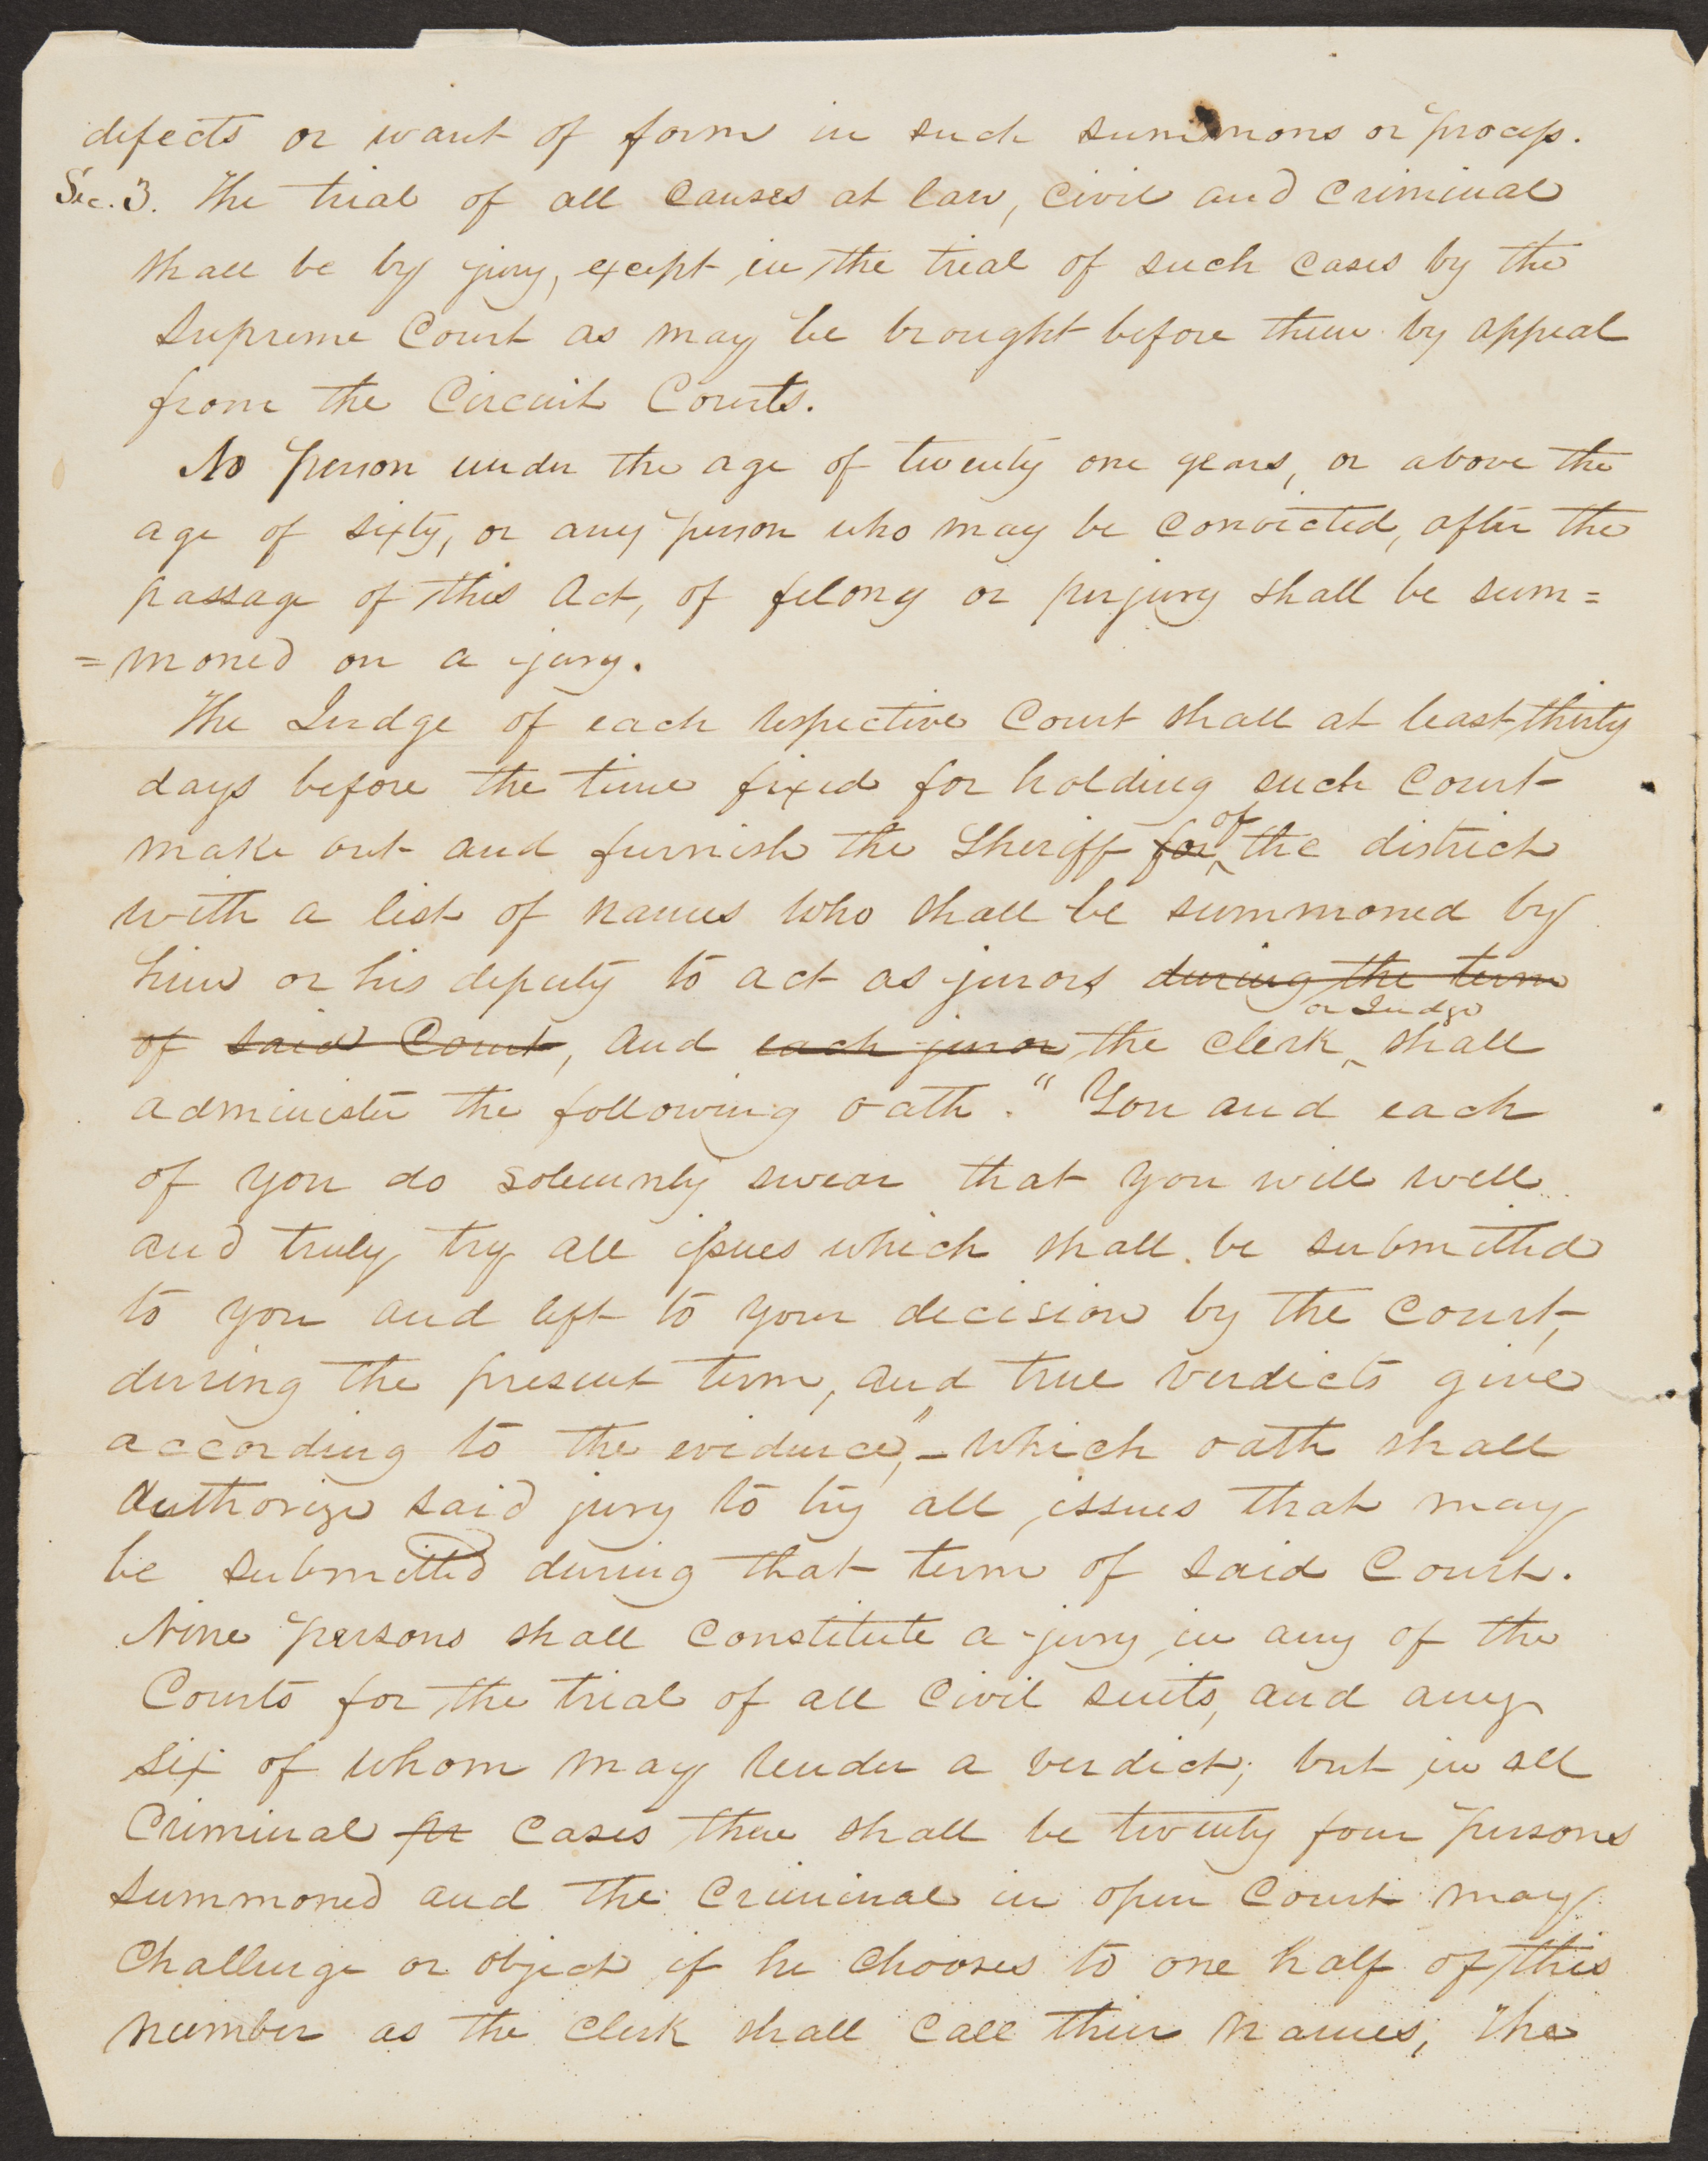 defects or want of form in such summons or process.
Sec. 3. The trial of all causes at law, civil and criminal
shall be by jury, except in the trial of such cases by the
Supreme Court as may be brought before them by appeal
from the Circuit Courts.
No person under the age of twenty one years, or above the
age of sixty, or any person who may be convicted, after the
passage of this Act, of felony or perjury shall be sum=
=moned on a jury.
The Judge of each respective Court shall at least thirty
days before the time fixed for holding such Court
make out and furnish the Sheriff for of the district
with a list of names who shall be summoned by
him or his deputy to act as jurors during the term
of said Court, and each juror the clerk or Judge shall
administer the following oath. "You and each
of you do solemnly swear that you will well
and truly try all issues which shall be submitted
to you and left to your decision by the Court,
during the present term, and true verdicts give
according to the evidence," - which oath shall
authorize said jury to try all issues that may
be submitted during that term of said Court.
Nine persons shall constitute a jury in any of the
Courts for the trial of all civil suits, and any
six of whom may render a verdict; but in all
Criminal pr cases there shall be twenty four persons
summoned and the criminal in open Court may
challenge or object if he chooses to one half of this
number as the clerk shall call their names, the